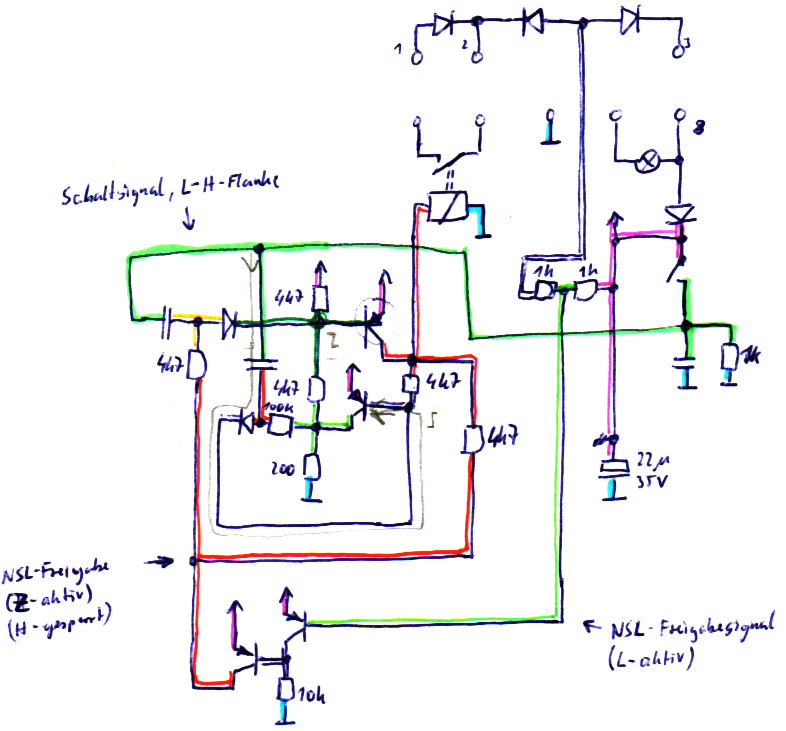 1
2
3
8
Schaltsignal, L-H-Flanke
1k
1k
4k7
4k7
4k7
4k7
100k
4k7
1k
200
22µ
35V
NSL-Freigabe
(Z-aktiv)
(H-gesperrt)
NSL-Freigabesignal
(L-aktiv)
10k